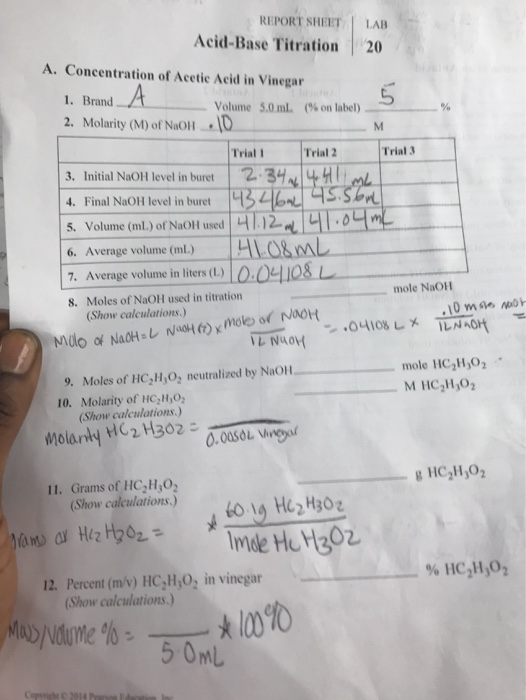 REPORT SHEET LAB
Acid-Base Titration 20
A. Concentration of Acetic Acid in Vinegar
1. Brand A Volume 5.0 mL (% on label) 5 %
2. Molarity (M) of NaOH .10 M
Trial 1 Trial 2 Trial 3
3. Initial NaOH level in buret 2.34 mL 4.41 mL
4. Final NaOH level in buret 43.46 mL 45.56 mL
5. Volume (mL) of NaOH used 41.12 mL 41.04 mL
6. Average volume (mL) 41.08 mL
7. Average volume in liters (L) 0.04108 L
8. Moles of NaOH used in titration mole NaOH
(Show calculations.)
Mole of NaOH = L NaOH x moles of NaOH = .04108 L x .10 moles NaOH =
1L NaOH 1L NaOH
9. Moles of HC₂H₃O₂ neutralized by NaOH mole HC₂H₃O₂
10. Molarity of HC₂H₃O₂ M HC₂H₃O₂
(Show calculations.)
Molarity HC2H3O2 =
0.0050L Vinegar
11. Grams of HC₂H₃O₂ g HC₂H₃O₂
(Show calculations.)
60.1g HC2H3O2
grams of HC2H3O2 = *
1mole HC H3O2
12. Percent (m/v) HC₂H₃O₂ in vinegar % HC₂H₃O₂
(Show calculations.)
Mass/Volume % = * 100%
5.0mL
Copyright © 2014 Pearson Education, Inc.